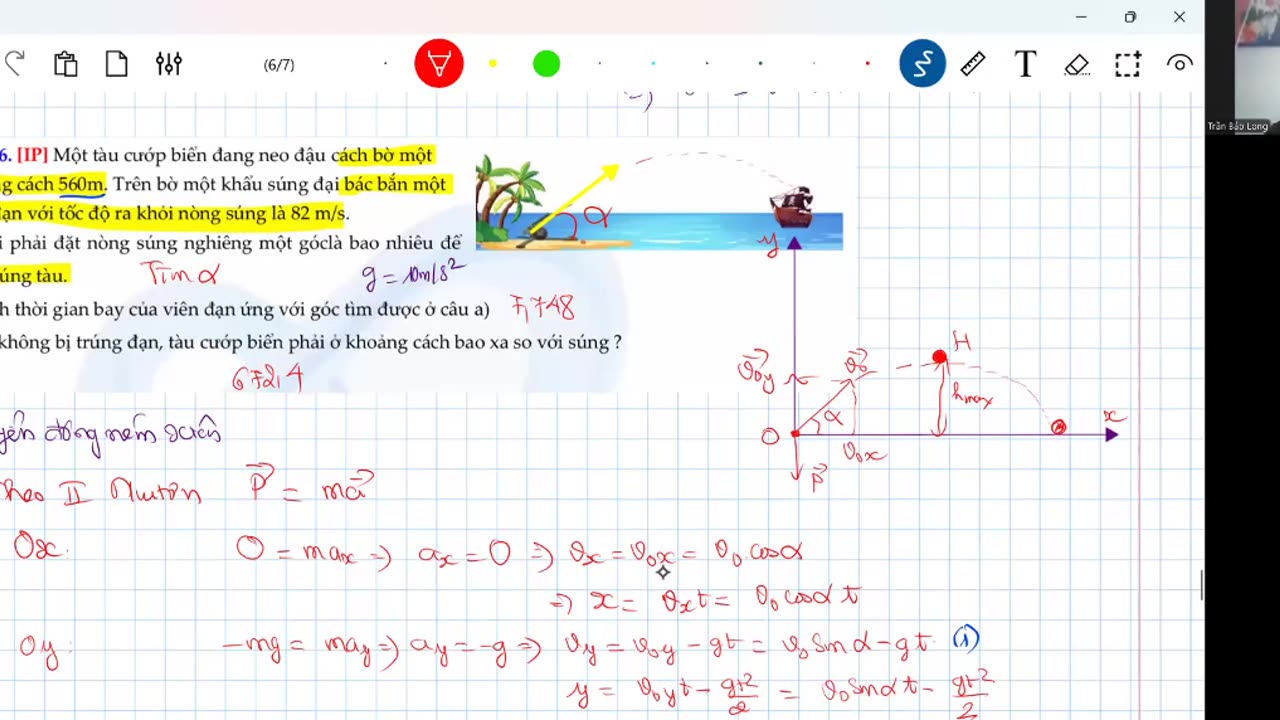 (6/7)
Trần Bảo Long
6. [IP] Một tàu cướp biển đang neo đậu cách bờ một
g cách 560m. Trên bờ một khẩu súng đại bác bắn một
đạn với tốc độ ra khỏi nòng súng là 82 m/s.
i phải đặt nòng súng nghiêng một góclà bao nhiêu để
úng tàu.
Tìm α
g = 10m/s²
h thời gian bay của viên đạn ứng với góc tìm được ở câu a) 7,748
không bị trúng đạn, tàu cướp biển phải ở khoảng cách bao xa so với súng ?
672,4
α
y
H
v⃗0y
v⃗0
hmax
α
O
x
v0x
P⃗
yển động ném xiên
Theo II Niutơn P⃗ = ma⃗
Ox: 0 = max => ax = 0 => vx = v0x = v0 cosα
=> x = vxt = v0 cosα t
Oy: -mg = may => ay = -g => vy = v0y - gt = v0 sinα - gt (1)
y = v0yt - gt²/2 = v0 sinα t - gt²/2